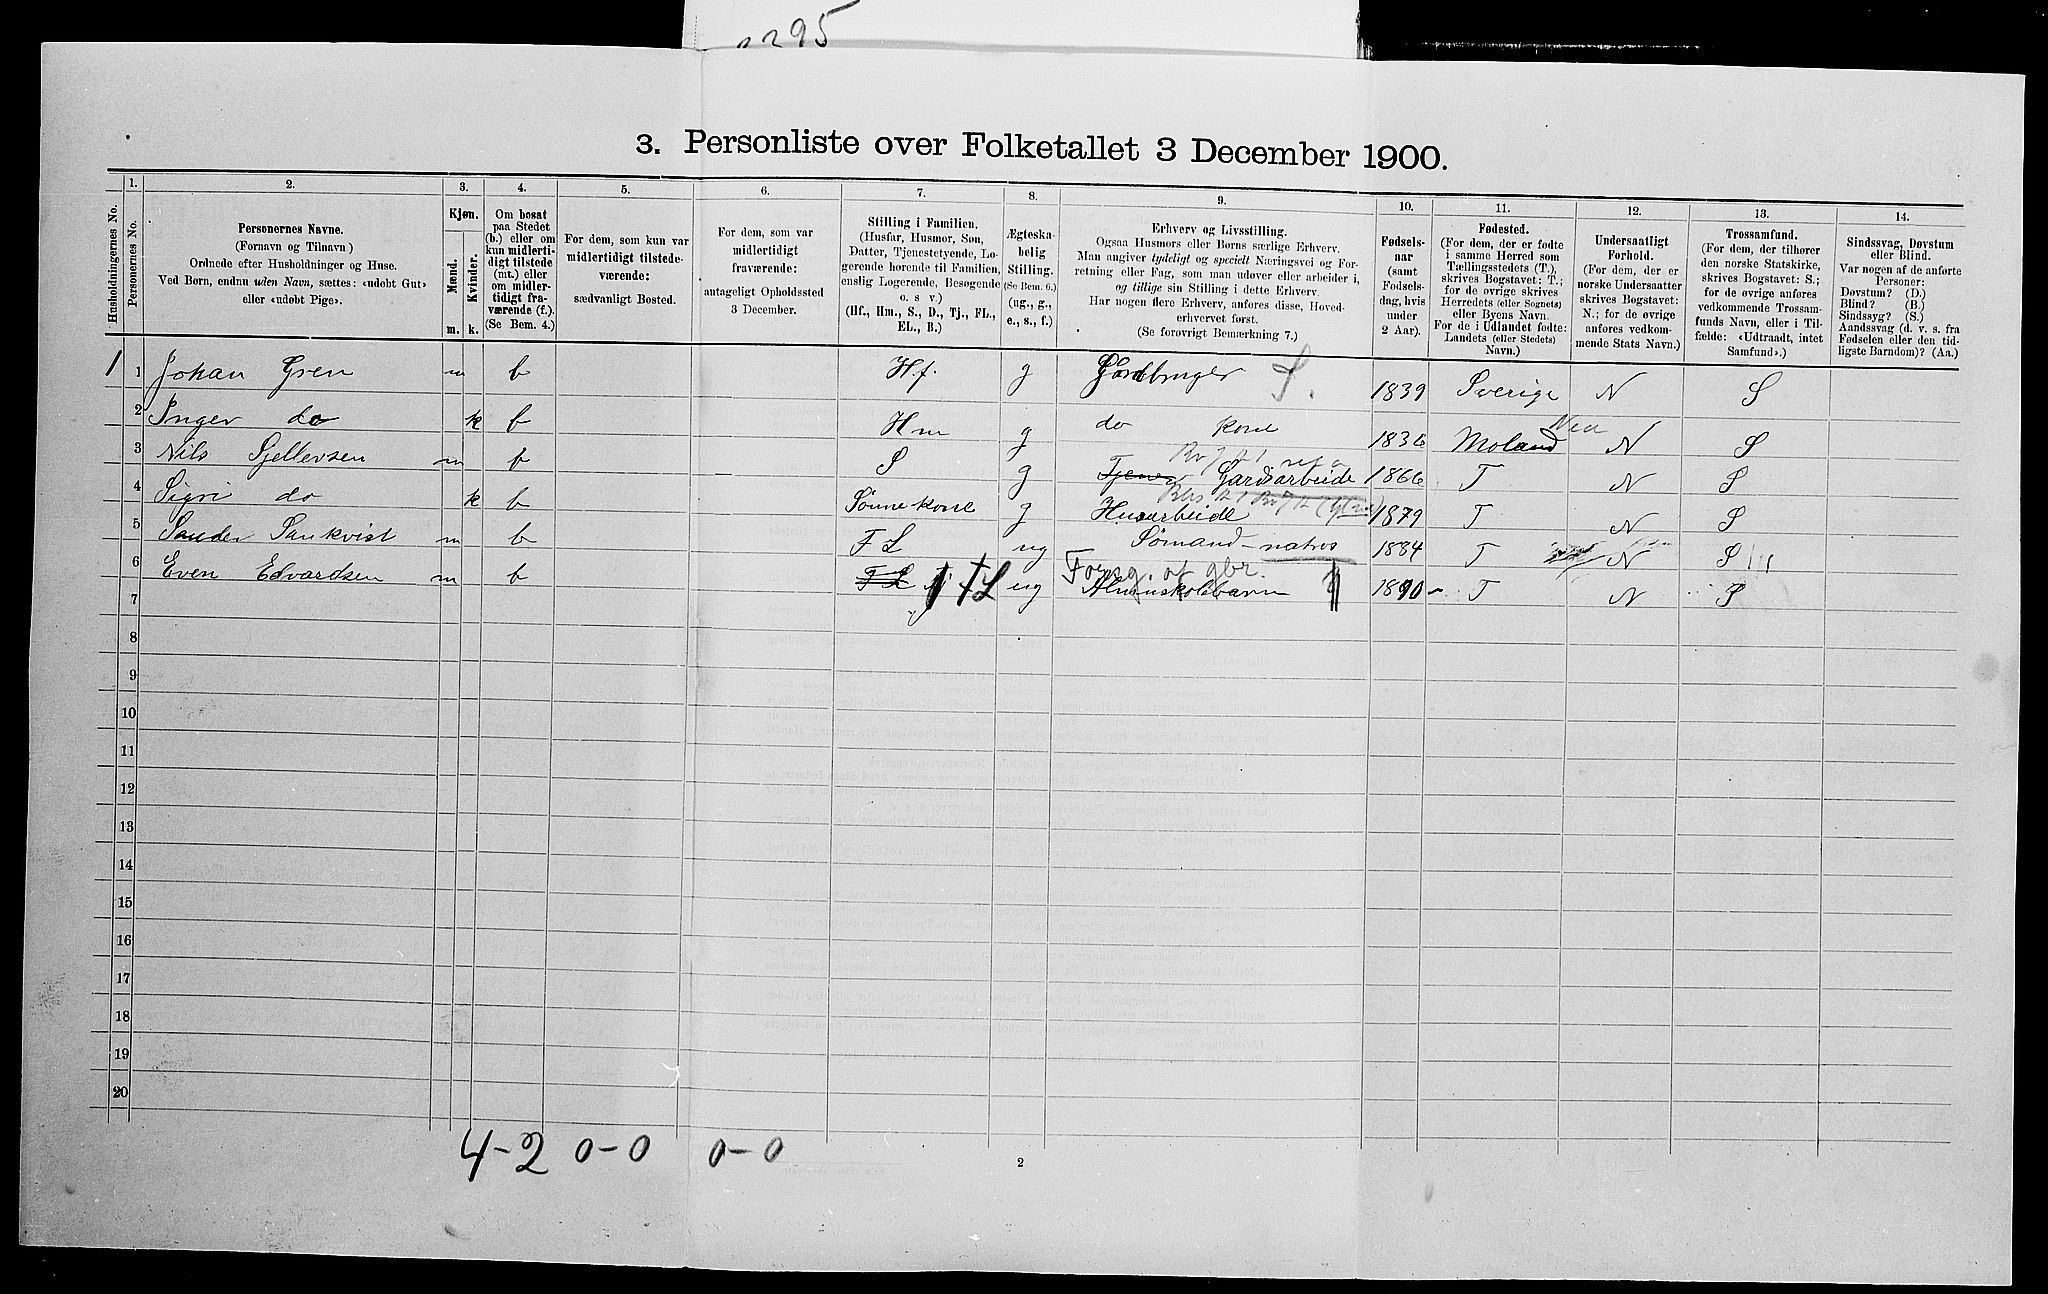 295
3. Personliste over Folketallet 3 December 1900.
Husholdningernes No.
1. Personernes No.
2. Personernes Navne.
(Fornavn og Tilnavn.)
Ordnede efter Husholdninger og Huse.
Ved Børn, endnu uden Navn, sættes: «udøbt Gut»
eller «udøbt Pige».
3. Kjøn.
Mænd. m.
Kvinder. k.
4. Om bosat
paa Stedet
(b.) eller om
kun midlerti-
digt tilstede
(mt.) eller
om midler-
tidigt fra-
værende (f.).
(Se Bem. 4.)
5. For dem, som kun var
midlertidigt tilstede-
værende:
sædvanligt Bosted.
6. For dem, som var
midlertidigt
fraværende:
antageligt Opholdssted
3 December.
7. Stilling i Familien.
(Husfar, Husmor, Søn,
Datter, Tjenestetyende, Lo-
gerende hørende til Familien,
enslig Logerende, Besøgende
o. s v.)
(Hf., Hm., S., D., Tj., FL.,
EL., B.)
8. Ægteska-
belig
Stilling.
(Se Bem. 6.)
(ug., g.,
e., s., f.)
9. Erhverv og Livsstilling.
Ogsaa Husmors eller Børns særlige Erhverv.
Man angiver tydeligt og specielt Næringsvei og For-
retning eller Fag, som man udøver eller arbeider i,
og tillige sin Stilling i dette Erhverv.
Har nogen flere Erhverv, anføres disse, Hoved-
erhvervet først.
(Se forøvrigt Bemærkning 7.)
10. Fødsels-
aar
(samt
Fødsels-
dag, hvis
under
2 Aar).
11. Fødested.
(For dem, der er fødte
i samme Herred som
Tællingsstedets (T.),
skrives Bogstavet: T.;
for de øvrige skrives
Herredets (eller Sognets)
eller Byens Navn.
For de i Udlandet fødte:
Landets (eller Stedets)
Navn.)
12. Undersaatligt
Forhold.
(For dem, der er
norske Undersaatter
skrives Bogstavet:
N.; for de øvrige
anføres vedkom-
mende Stats Navn.)
13. Trossamfund.
(For dem, der tilhører
den norske Statskirke,
skrives Bogstavet: S.;
for de øvrige anføres
vedkommende Trossam-
funds Navn, eller i Til-
fælde: «Udtraadt, intet
Samfund».)
14. Sindssvag, Døvstum
eller Blind.
Var nogen af de anførte
Personer:
Døvstum? (D.)
Blind? (B.)
Sindssyg? (S.)
Aandssvag (d. v. s. fra
Fødselen eller den tid-
ligste Barndom)? (Aa.)
1 1 Johan Gren m b H.f. g Gardbruger S. 1839 Sverige N S
2 Inger do k b Hm g do kone 1836 Moland N S
3 Nils Gjellevsen m b S g Tjener Gardsarbeide 1866 T N S
4 Sigri do k b Sønnekone g Husarbeide 1879 T N S
5 Sander Sankvist m b F L ug Sømand – matros 1884 T N S
Forsg. af gbr.
6 Even Edvardsen m b F L FL ug Almuskolebarn 1890 T N S
7
8
9
10
11
12
13
14
15
16
17
18
19
20
4-2 0-0 0-0
2